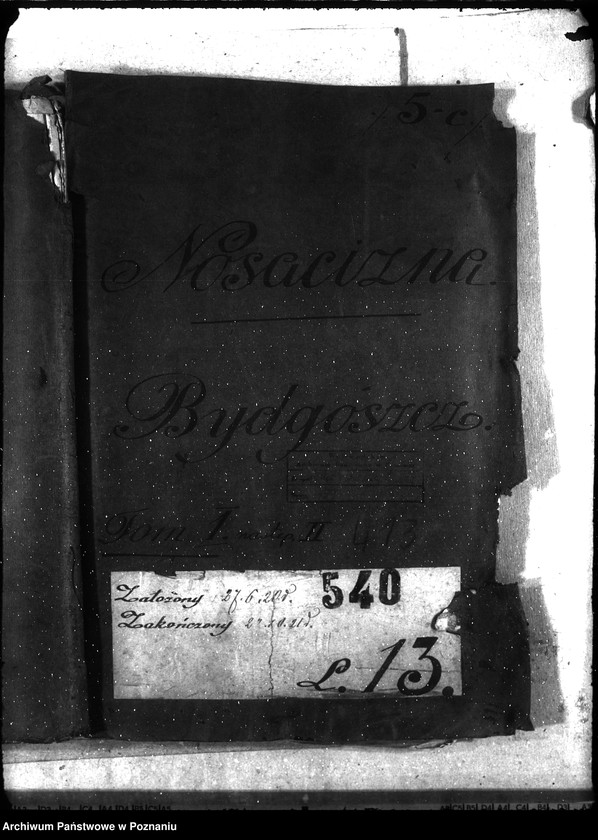 5-c.
Nosacizna.
Bydgoszcz.
Tom I. II 413
Założony 27.6.20r.
540
Zakończony
L. 13.
Archiwum Państwowe w Poznaniu